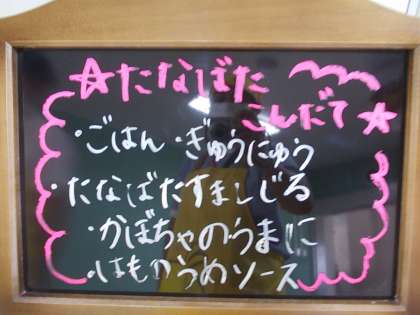 ☆たなばた
こんだて☆
・ごはん ・ぎゅうにゅう
・たなばたすましじる
・かぼちゃのうまに
・はもかうめソース